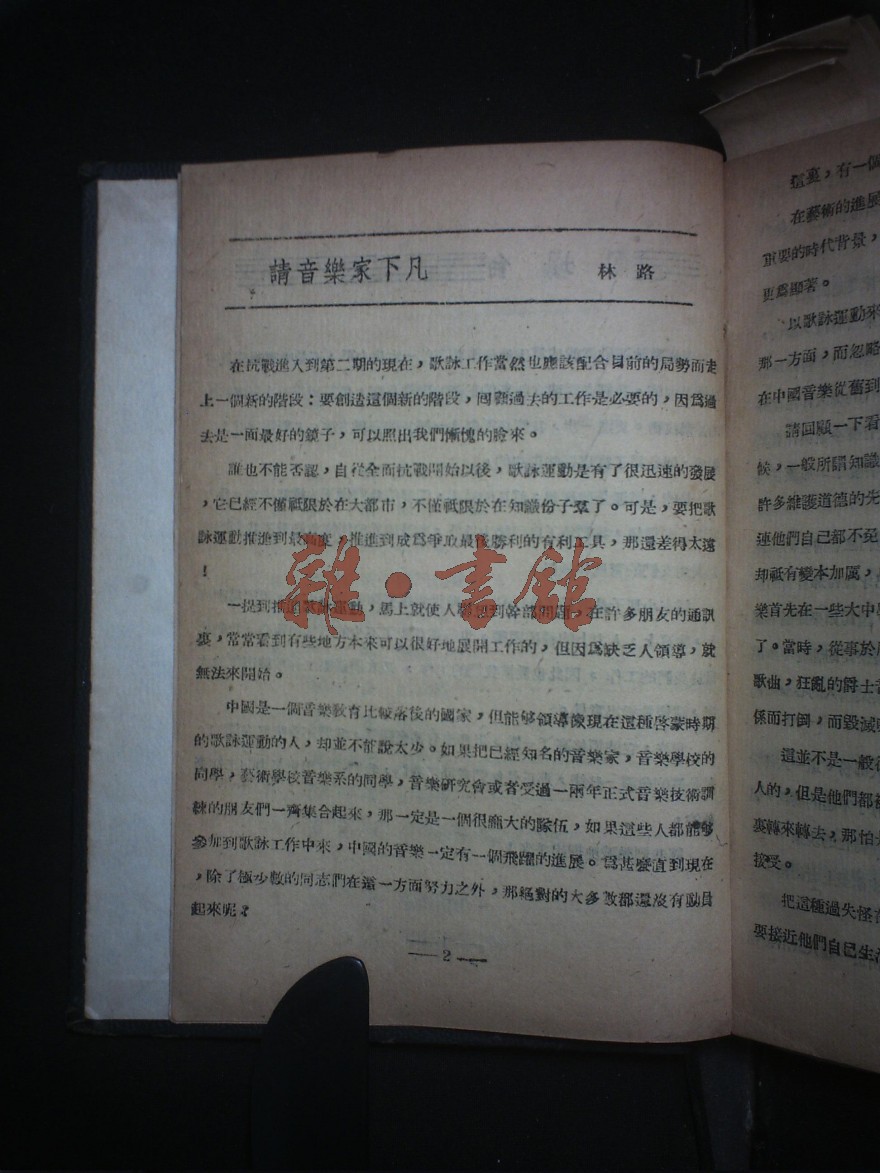 請音樂家下凡 林路
在抗戰進入到第二期的現在，歌詠工作當然也應該配合目前的局勢而走
上一個新的階段：要創造這個新的階段，回顧過去的工作是必要的，因爲過
去是一面最好的鏡子，可以照出我們慚愧的臉來。
誰也不能否認，自從全面抗戰開始以後，歌詠運動是有了很迅速的發展
，它已經不僅祇限於在大都市，不僅祇限於在知識份子羣了。可是，要把歌
詠運動推進到最高度，推進到成爲爭取最後勝利的有利工具，那還差得太遠
！
一提到推進歌詠運動，馬上就使人聯想到幹部問題，在許多朋友的通訊
裏，常常看到有些地方本來可以很好地展開工作的，但因爲缺乏人領導，就
無法來開始。
中國是一個音樂敎育比較落後的國家，但能够領導像現在這種啓蒙時期
的歌詠運動的人，却並不能說太少。如果把已經知名的音樂家，音樂學校的
同學，藝術學校音樂系的同學，音樂研究會或者受過一兩年正式音樂技術訓
練的朋友們一齊集合起來，那一定是一個很龐大的隊伍，如果這些人都能够
參加到歌詠工作中來，中國的音樂一定有一個飛躍的進展。爲甚麼直到現在
，除了極少數的同志們在這一方面努力之外，那絕對的大多數都還沒有動員
起來呢？
— 2 —
雜·書館
這裏，有一個
在藝術的進展
重要的時代背景，
更爲顯著。
以歌詠運動來
那一方面，而忽略
在中國音樂從舊到
請回顧一下看
候，一般所謂知識
許多維護道德的先
連他們自己都不免
却祇有變本加厲，
樂首先在一些大中學
了。當時，從事於
歌曲，狂亂的爵士音
係而打倒，而毀滅
這並不是一般
人的，但是他們都
裏轉來轉去，那怕是
接受。
把這種過失怪
要接近他們自己生活